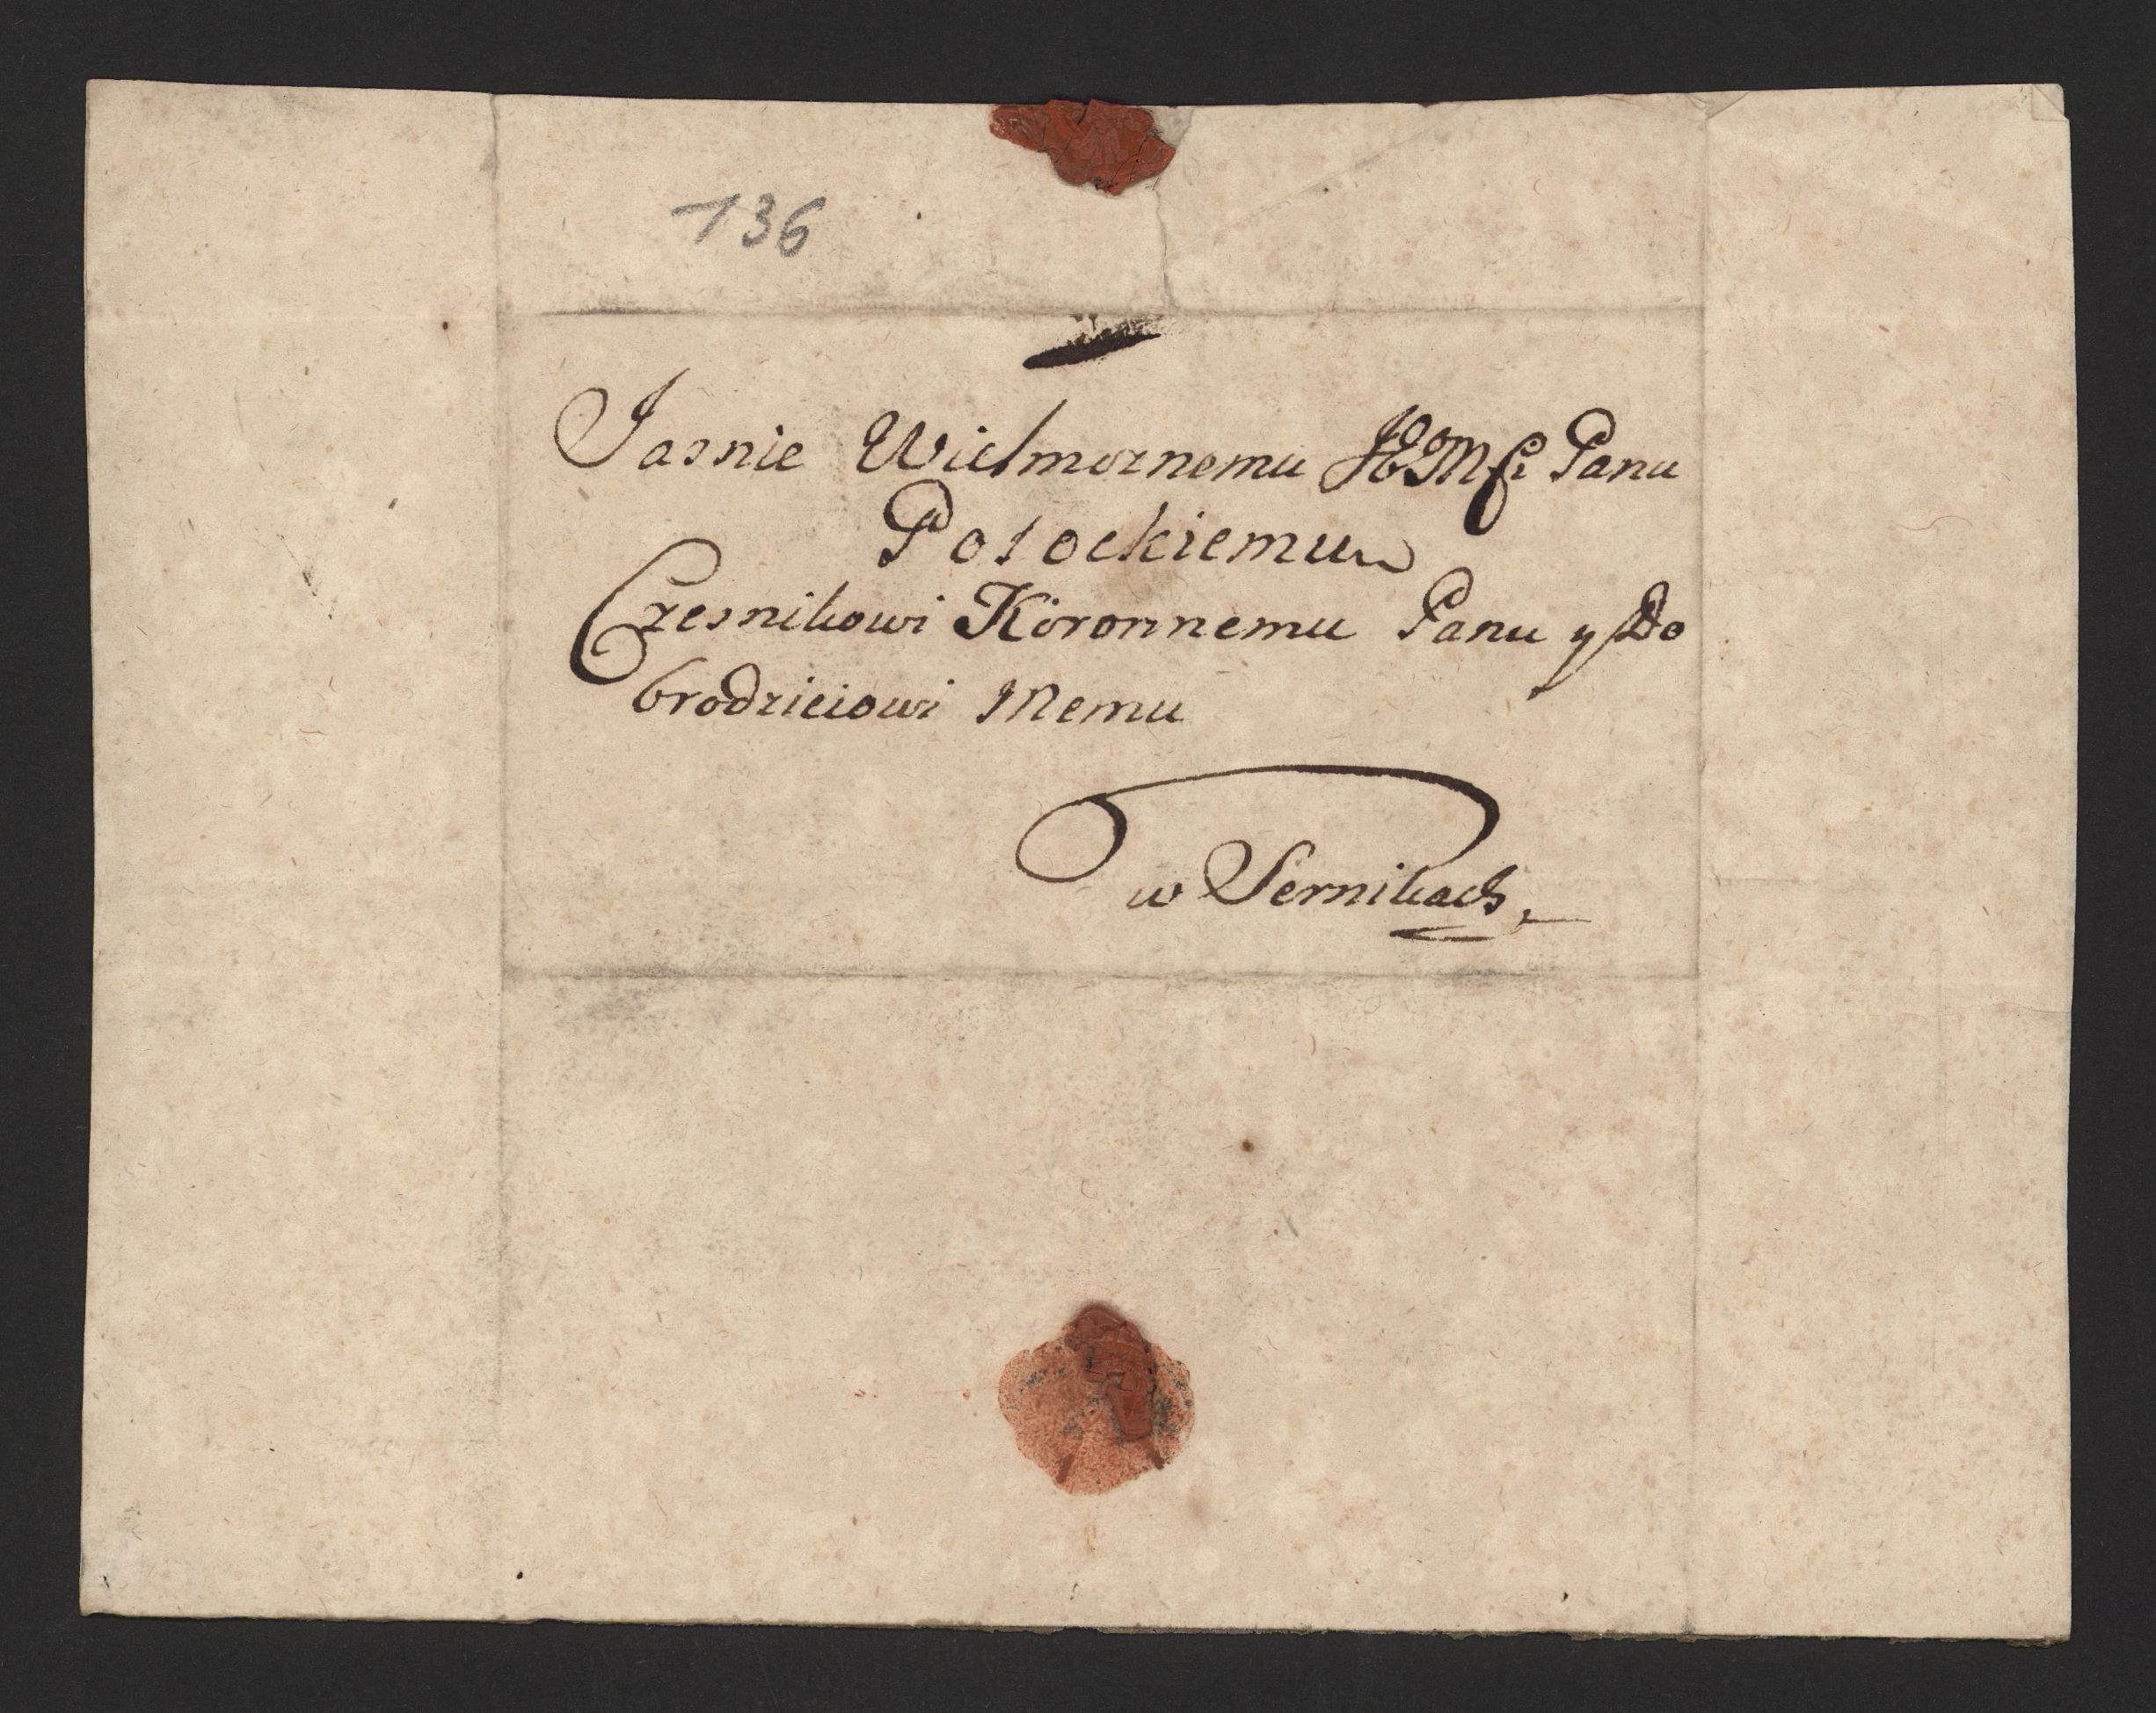 136
Jasnie Wielmoznemu JEMCi Panu
Potockiemu
Czesnikowi Koronnemu Panu y Do
brodzieiowi Memu
w Sernikach